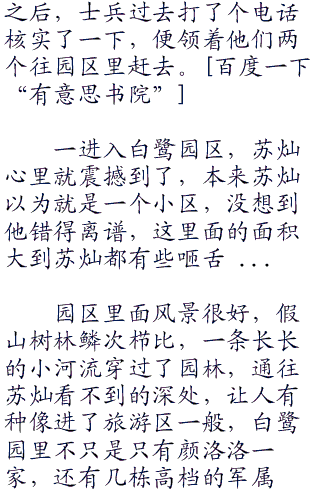 之后，士兵过去打了个电话
核实了一下，便领着他们两
个往园区里赶去。[百度一下
“有意思书院”]
一进入白鹭园区，苏灿
心里就震撼到了，本来苏灿
以为就是一个小区，没想到
他错得离谱，这里面的面积
大到苏灿都有些咂舌 ...
园区里面风景很好，假
山树林鳞次栉比，一条长长
的小河流穿过了园林，通往
苏灿看不到的深处，让人有
种像进了旅游区一般，白鹭
园里不只是只有颜洛洛一
家，还有几栋高档的军属